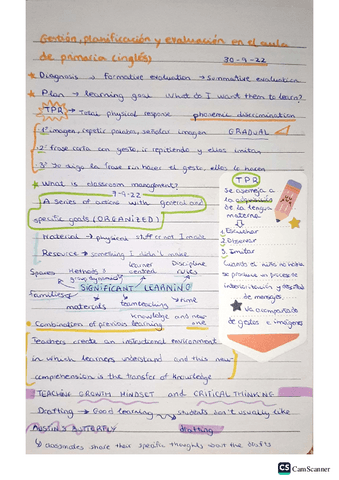 Gestión, planificación y evaluación en el aula
de primaria (inglés) 30-9-22
Diagnosis → formative evaluation → Summative evaluation
Plan → learning goal What do I want them to learn?
TPR → Total physical response phonemic discrimination
1º imagen, repetir palabra, señalar imagen GRADUAL
2º frase corta con gesto, ir repitiendo y ellos imitar
3º Yo digo la frase sin hacer el gesto, ellos lo hacen
What is classroom management?
9-9-22
A series of actions with general and
specific goals (ORGANIZED)
Material → physical stuff or not I made
Resource → something I didn't make
Spaces Methods learner centred Discipline rules
group dynamics
families SIGNIFICANT LEARNING
materials teamteaching time
knowledge and new one
Combination of previous learning
Teachers create an instructional environment
in which learners understand and this new
comprehension is the transfer of knowledge
TEACHING GROWTH MINDSET and CRITICAL THINKING
Drafting → Good learning → students don't usually like
drafting
AUSTIN'S BUTTERFLY
↳ classmates share their specific thoughts about the drafts
TPR
Se asemeja a
la
de la lengua
materna
1 Escuchar
2 Observar
3 Imitar
Cuando el niño no habla
se produce un proceso de
interiorización y
de mensajes.
Va acompañada
de gestos e imágenes
CS CamScanner